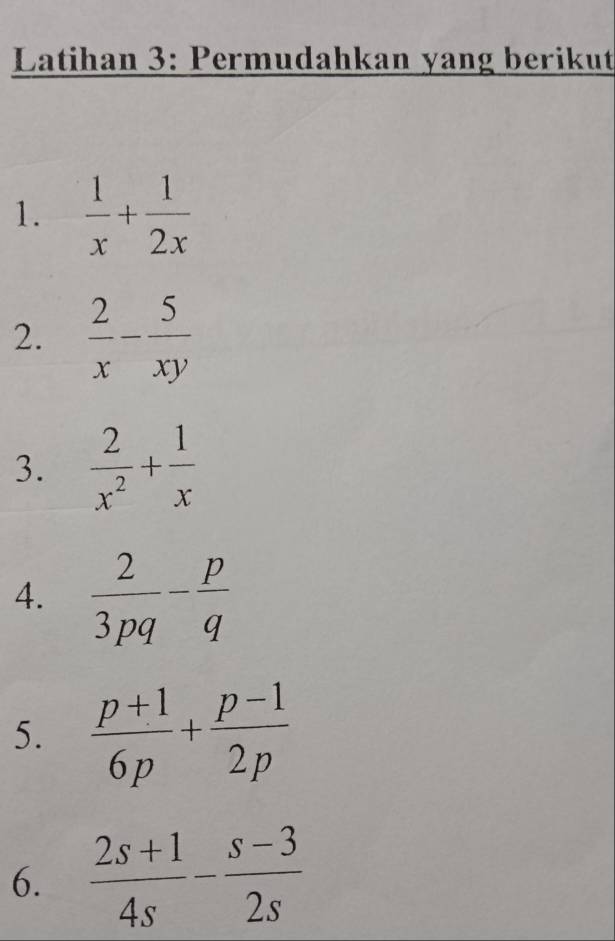 Latihan 3: Permudahkan yang berikut
1. \frac{1}{x} + \frac{1}{2x}
2. \frac{2}{x} - \frac{5}{xy}
3. \frac{2}{x^2} + \frac{1}{x}
4. \frac{2}{3pq} - \frac{p}{q}
5. \frac{p+1}{6p} + \frac{p-1}{2p}
6. \frac{2s+1}{4s} - \frac{s-3}{2s}